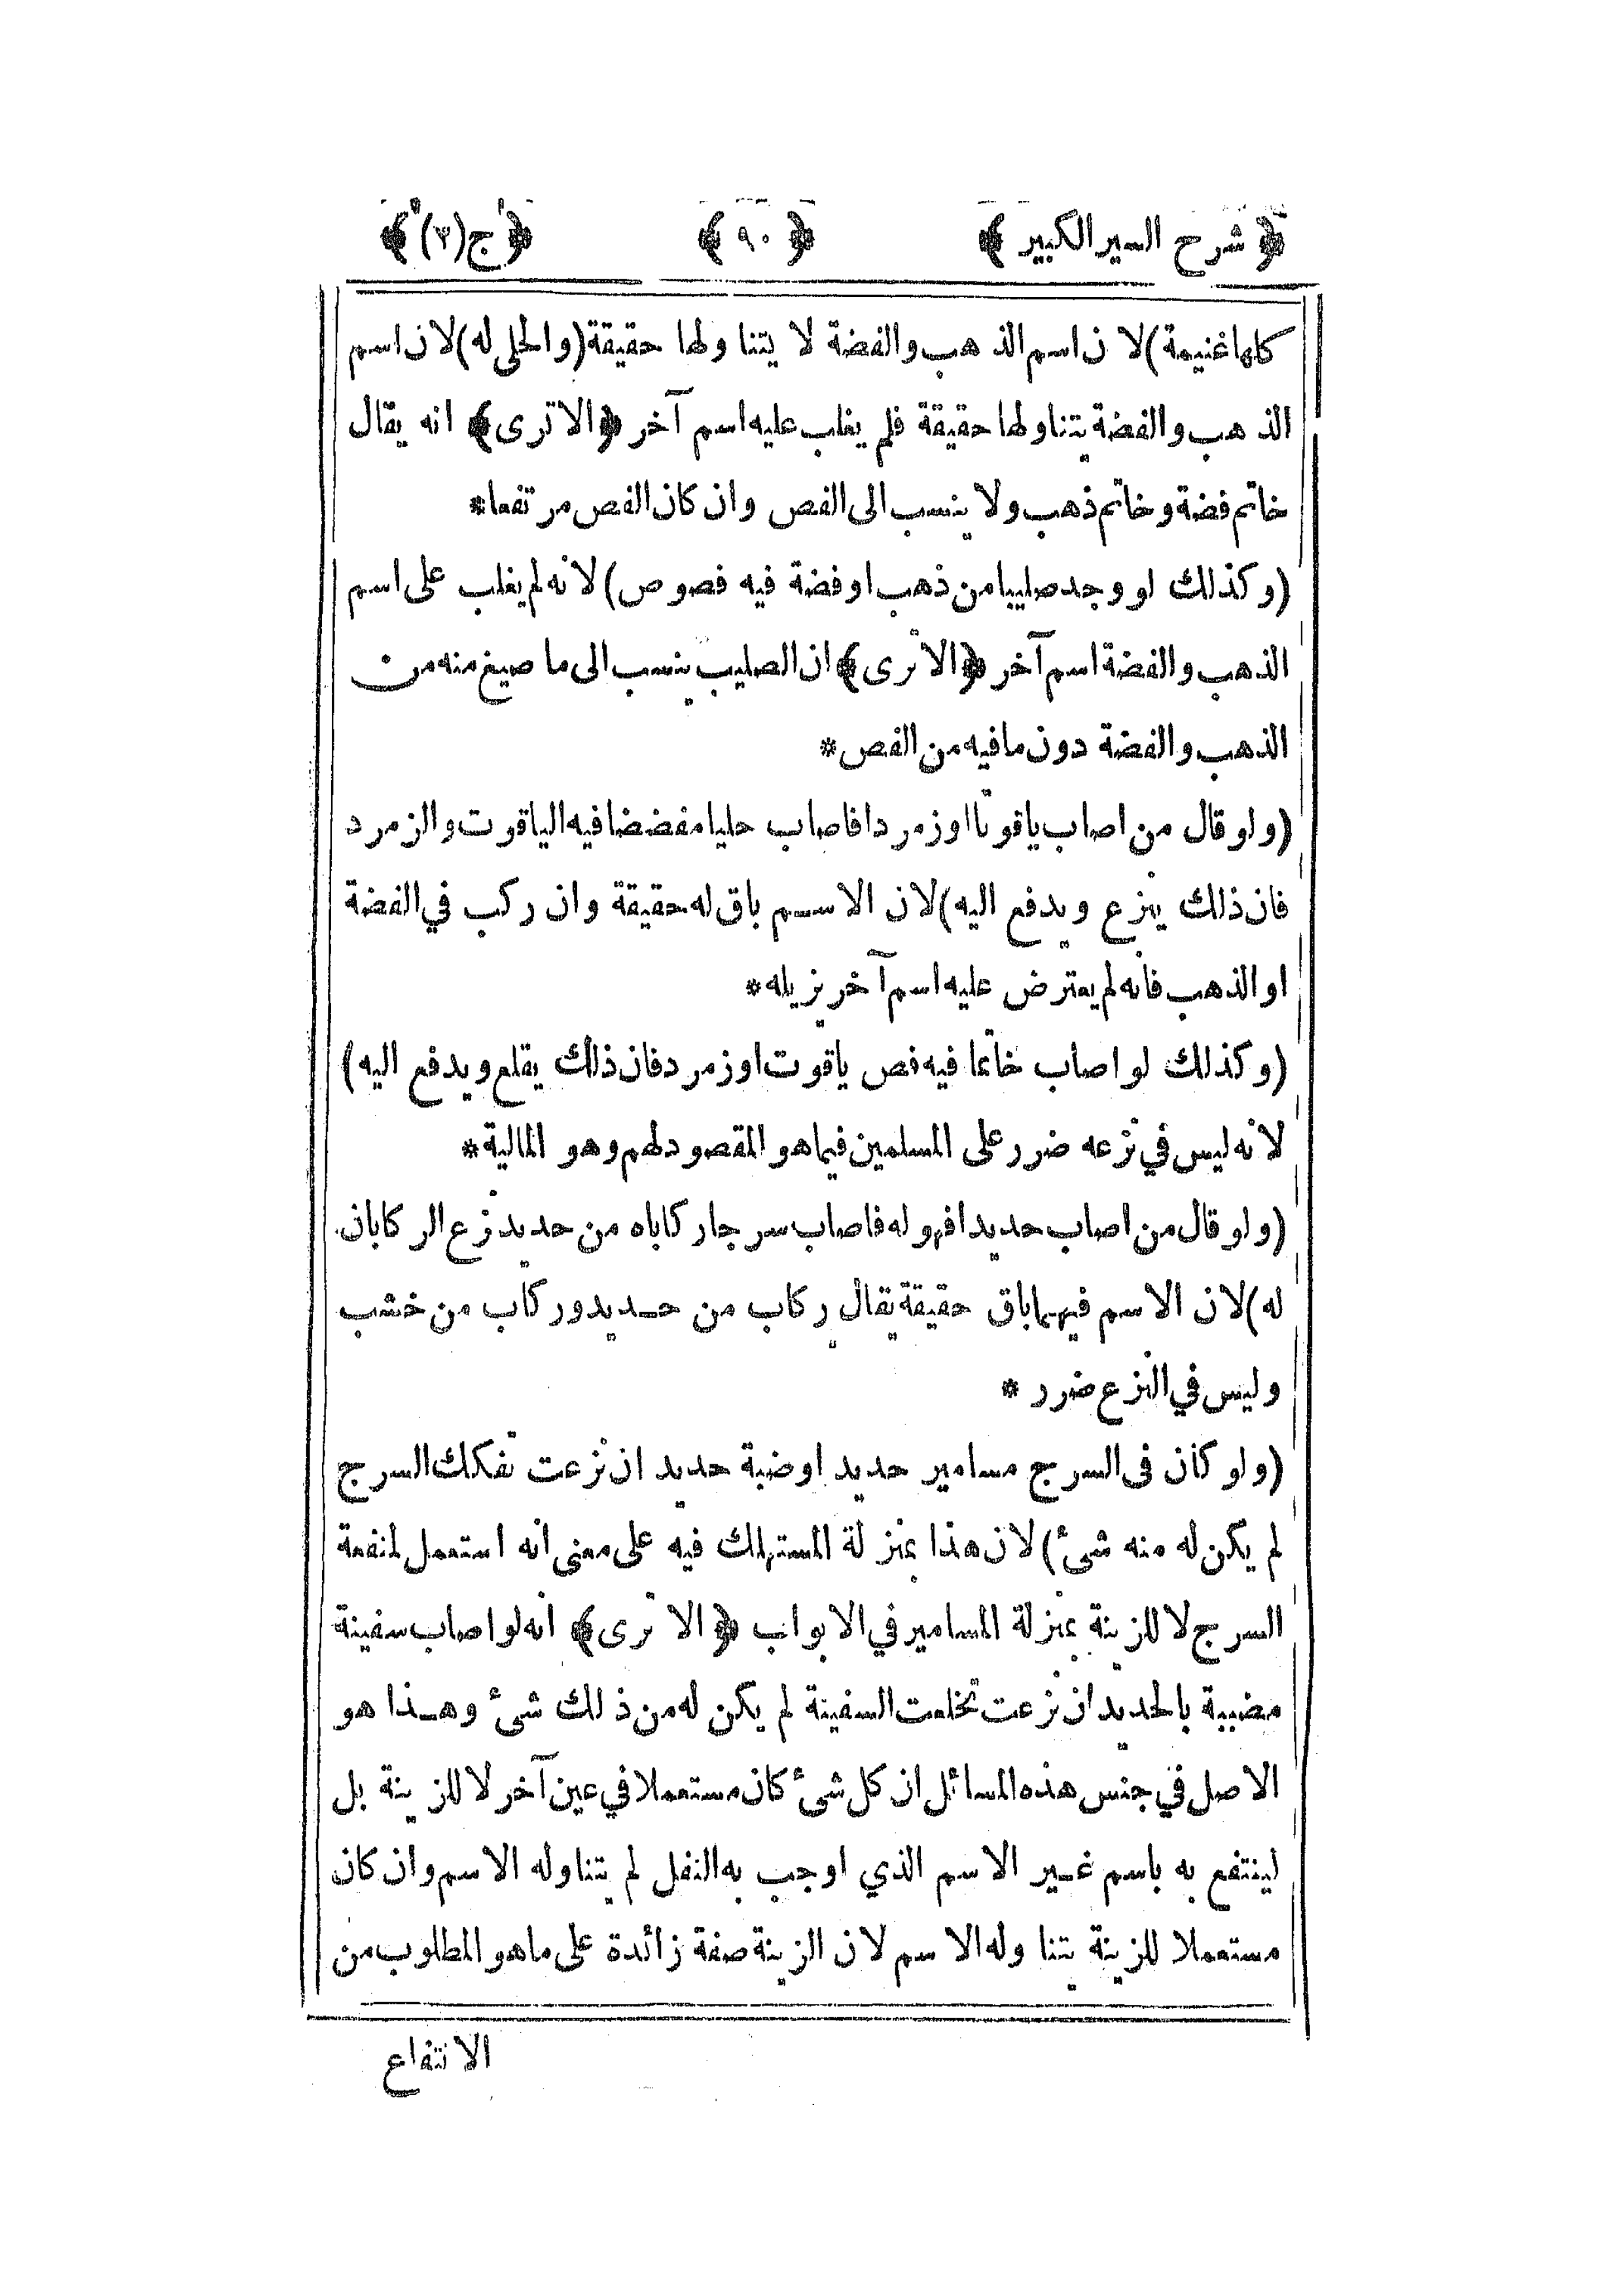 ﴿ شرح السير الكبير ﴾ ﴿ ٩٠ ﴾ ﴿ ج(٢) ﴾
كلها غنيمة) لان اسم الذهب والفضة لا يتناولها حقيقة (والحلى له) لان اسم
الذهب والفضة يتناولها حقيقة فلم يغلب عليه اسم آخر ﴿الا ترى﴾ انه يقال
خاتم فضة وخاتم ذهب ولا ينسب الى الفص وان كان الفص مرتفعا*
(وكذلك لو وجد صليبا من ذهب او فضة فيه فصوص) لانه لم يغلب على اسم
الذهب والفضة اسم آخر ﴿الا ترى﴾ ان الصليب ينسب الى ما صيغ منه من
الذهب والفضة دون ما فيه من الفص*
(ولو قال من اصاب ياقوتا او زمردا فاصاب حليا مفضضا فيه الياقوت والزمرد
فان ذلك ينزع ويدفع اليه) لان الاسم باق له حقيقة وان ركب في الفضة
او الذهب فانه لم يعترض عليه اسم آخر يزيله*
(وكذلك لو اصاب خاتما فيه فص ياقوت او زمرد فان ذلك يقلع ويدفع اليه)
لانه ليس في نزعه ضرر على المسلمين فيما هو المقصود لهم وهو المالية*
(ولو قال من اصاب حديدا فهو له فاصاب سرجا ركاباه من حديد نزع الركابان
له) لان الاسم فيهما باق حقيقة يقال ركاب من حديد وركاب من خشب
وليس في النزع ضرر *
(ولو كان فى السرج مسامير حديد او ضبة حديد ان نزعت تفكك السرج
لم يكن له منه شئ) لان هذا بمنزلة المستهلك فيه على معنى انه استعمل لمنفعة
السرج لا للزينة بمنزلة المسامير في الابواب ﴿الا ترى﴾ انه لو اصاب سفينة
مضببة بالحديد ان نزعت تخلعت السفينة لم يكن له من ذلك شئ وهذا هو
الاصل في جنس هذه المسائل ان كل شئ كان مستعملا في عين آخر لا للزينة بل
لينتفع به باسم غير الاسم الذي اوجب به النفل لم يتناوله الاسم وان كان
مستعملا للزينة يتناوله الاسم لان الزينة صفة زائدة على ما هو المطلوب من
الانتفاع